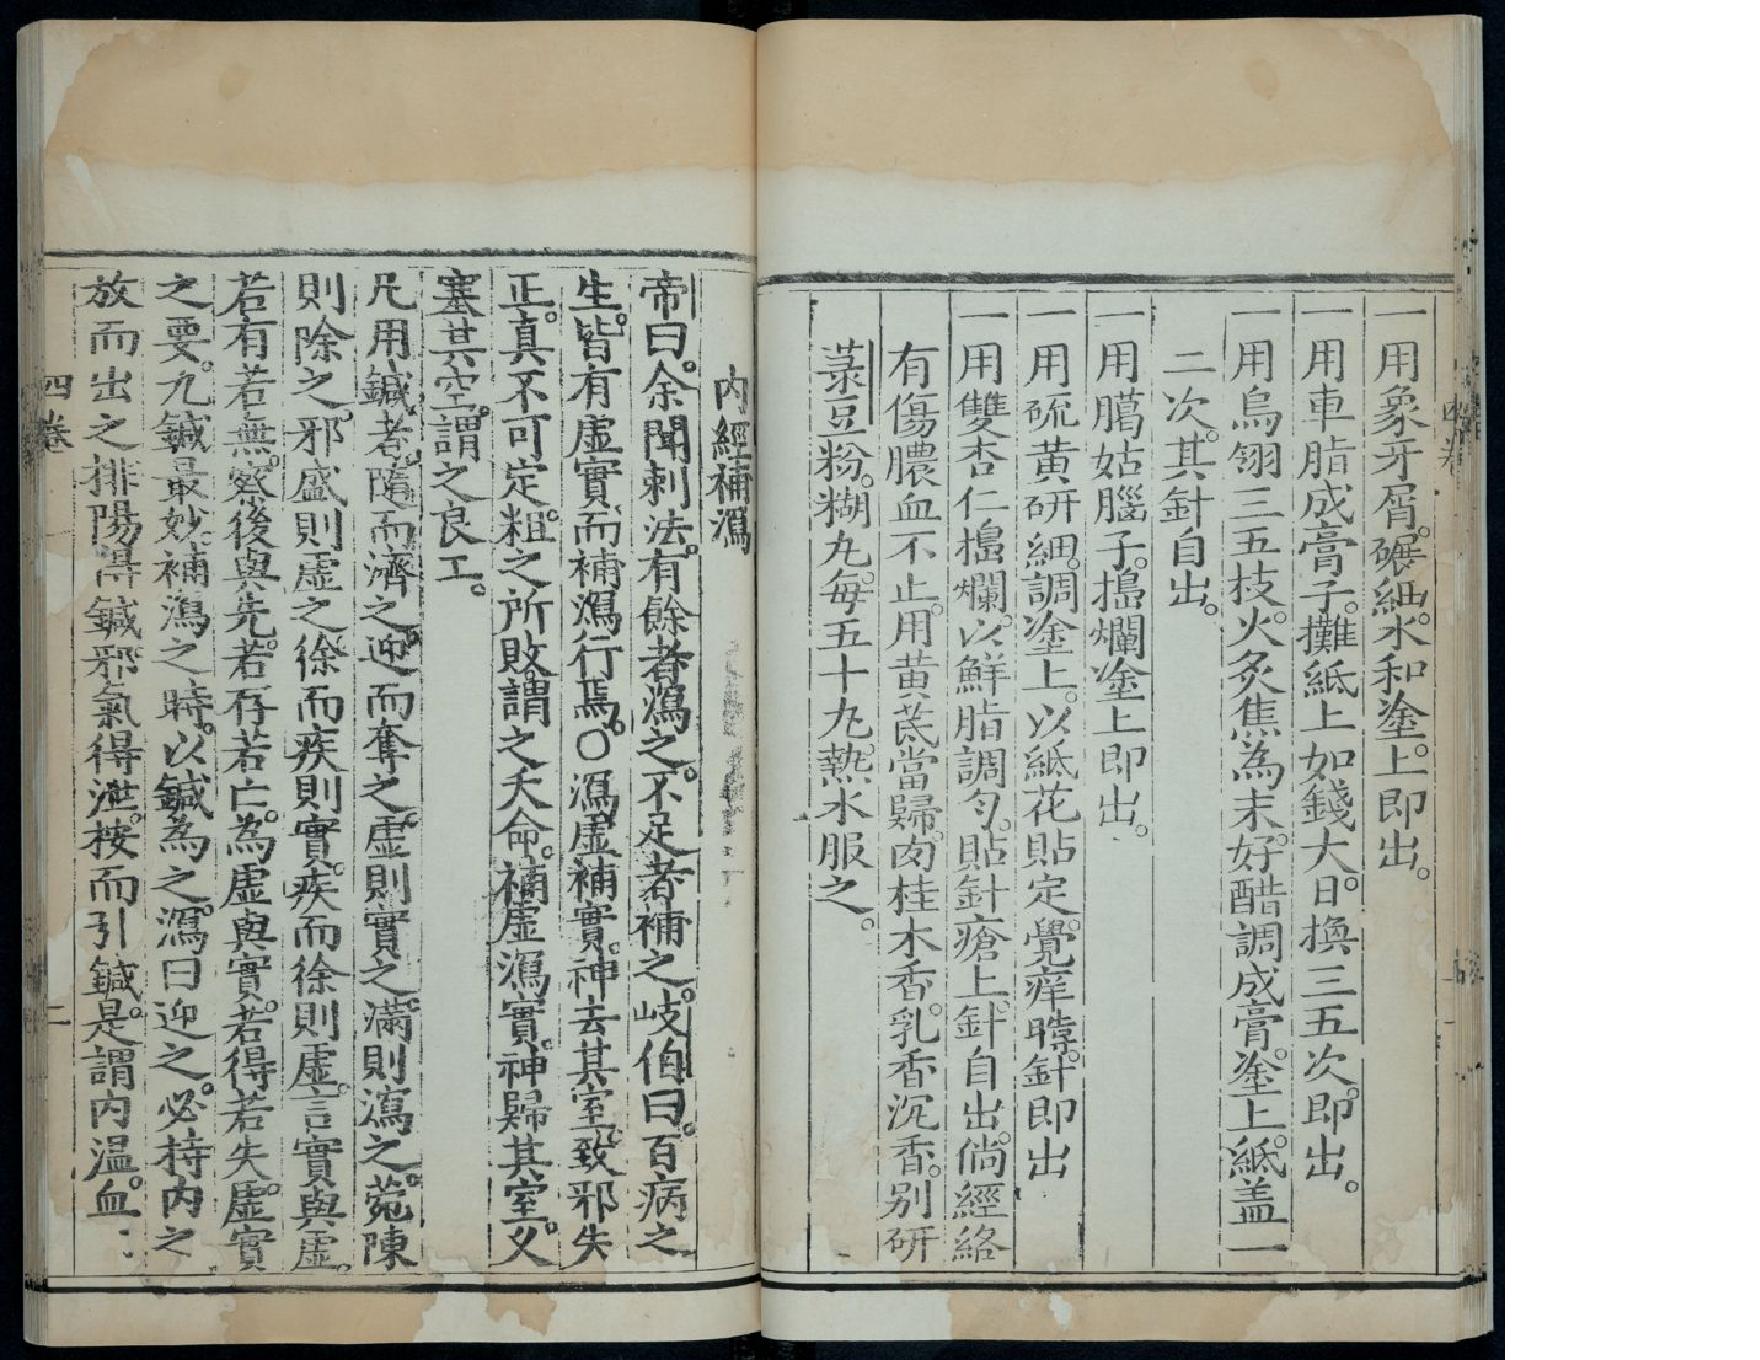 一用象牙屑。碾細。水和塗上。即出。
一用車脂成膏子。攤紙上如錢大。日換三五次。即出。
一用烏翎三五枝。火炙焦為末。好醋調成膏。塗上。紙盖一
二次。其針自出。
一用臈姑腦子。搗爛塗上即出。
一用硫黃研細。調塗上。以紙花貼定。覺痒時。針即出
一用雙杏仁搗爛。以鮮脂調勻。貼針瘡上。針自出。倘經絡
有傷膿血不止。用黃芪當歸。肉桂木香。乳香沉香。別研
菉豆粉。糊丸。每五十丸。熱水服之。
內經補瀉
帝曰。余聞刺法。有餘者瀉之。不足者補之。岐伯曰。百病之
生。皆有虛實。而補瀉行焉。○瀉虛補實。神去其室。致邪失
正。真不可定。粗之所敗。謂之夭命。補虛瀉實。神歸其室。乂
塞其空。謂之良工。
凡用鍼者。隨而濟之。迎而奪之。虛則實之。滿則瀉之。菀陳
則除之。邪盛則虛之。徐而疾則實。疾而徐則虛。言實與虛。
若有若無。察後與先。若存若亡。為虛與實。若得若失。虛實
之要。九鍼最妙。補瀉之時。以鍼為之。瀉曰迎之。必持內之
放而出之。排陽得鍼。邪氣得泄。按而引鍼。是謂內溫。血
四卷
二